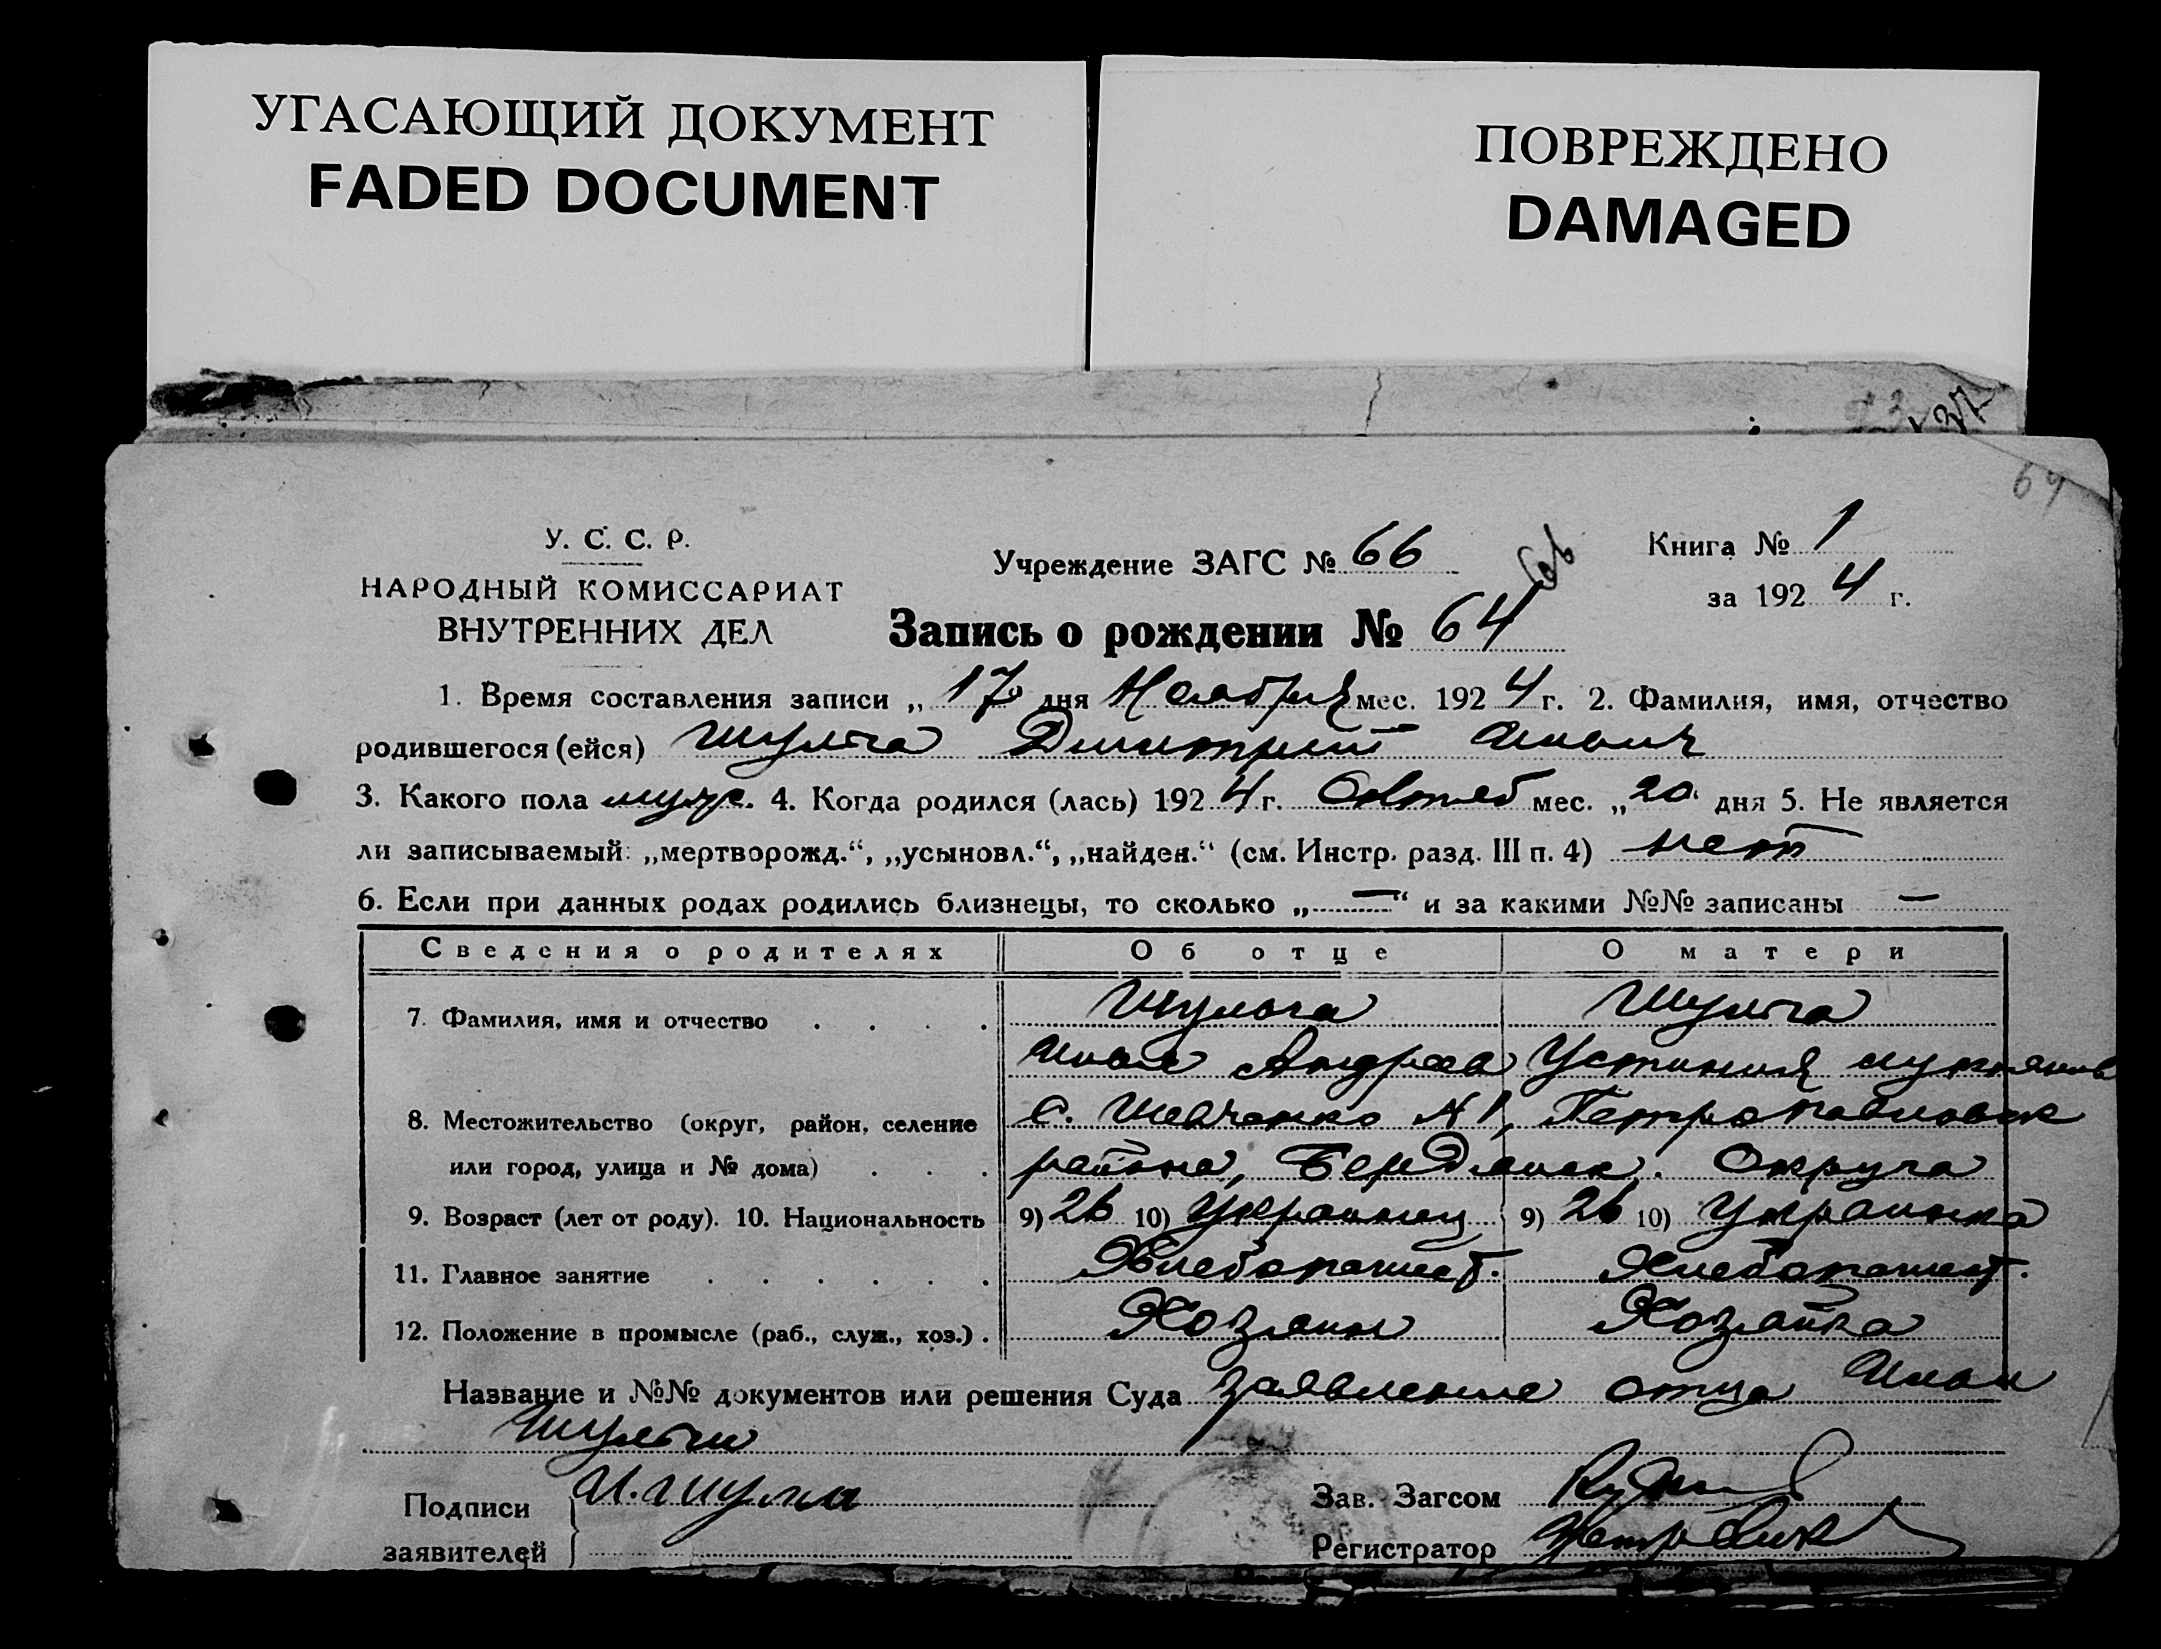 УГАСАЮЩИЙ ДОКУМЕНТ
FADED DOCUMENT
ПОВРЕЖДЕНО
DAMAGED
37
64
У. С. С. Р.
НАРОДНЫЙ КОМИССАРИАТ
ВНУТРЕННИХ ДЕЛ
Учреждение ЗАГС № 66
Книга № 1
за 1924 г.
Запись о рождении № 64
1. Время составления записи „ 17 дня Ноября мес. 1924 г. 2. Фамилия, имя, отчество
родившегося (ейся) Шульга Димитрий Иванович
3. Какого пола муж. 4. Когда родился (лась) 1924 г. Октяб мес. „20 дня 5. Не является
ли записываемый: „мертворожд.“, „усыновл.“, „найден.“ (см. Инстр. разд. III п. 4) нет
6. Если при данных родах родились близнецы, то сколько „—“ и за какими №№ записаны —
Сведения о родителях Об отце О матери
7. Фамилия, имя и отчество Шульга Шульга
Иван Андреев Устиния
8. Местожительство (округ, район, селение с. Шевченко №1, Петропавловск
или город, улица и № дома) района, Бердянск. Округа
9. Возраст (лет от роду). 10. Национальность 9) 26 10) Украинец 9) 26 10) Украинка
11. Главное занятие Хлебопашест. Хлебопашест.
12. Положение в промысле (раб., служ., хоз.) Хозяин Хозяйка
Название и №№ документов или решения Суда заявление отца Иван
Шульги
Подписи И. Шульга Зав. Загсом
заявителей Регистратор